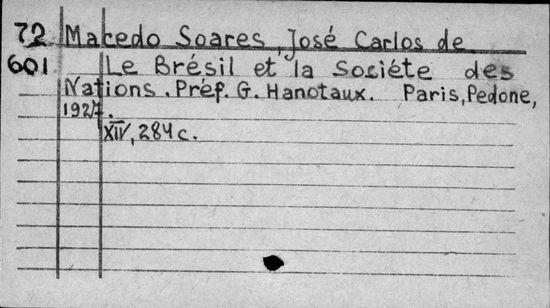 72 Macedo Soares, José Carlos de
601 Le Brésil et la Sociéte des
Nations. Préf. G. Hanotaux. Paris, Pedone,
1927.
XIV, 284 c.